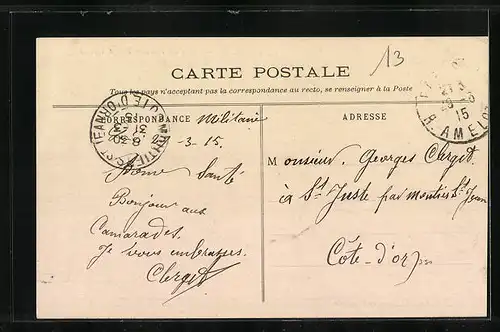 13
CARTE POSTALE
Tous les pays n'acceptant pas la correspondance au recto, se renseigner à la Poste
CORRESPONDANCE Militaire
ADRESSE
-3-15.
Bonne Santé
Bonjour aux
Camarades.
Je vous embrasses.
Clerget
Monsieur Georges Clerget
à St Juste par Moutiers St Jean
Côte-d'or
15
R. AMELOT